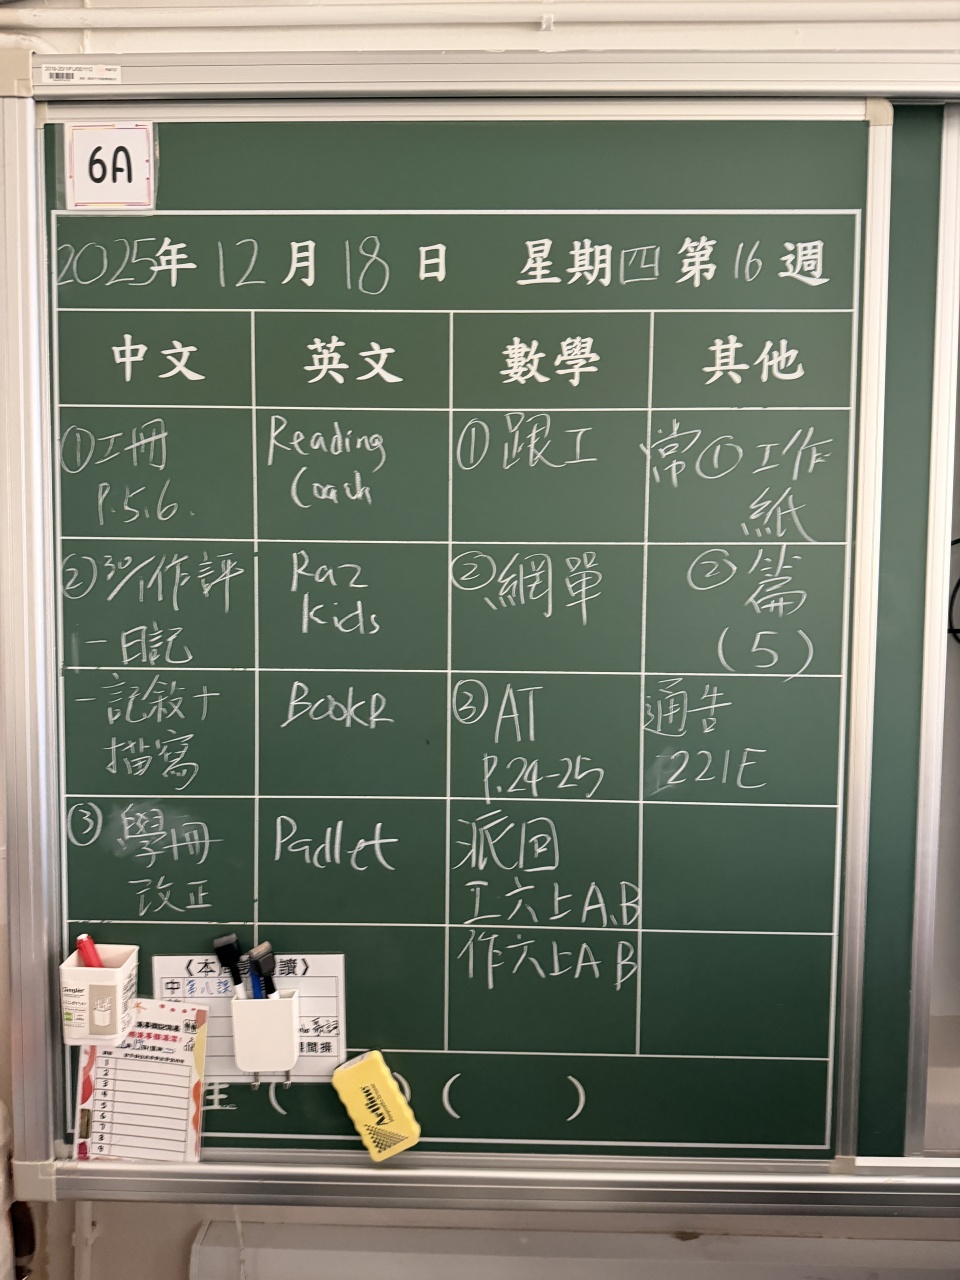 6A
2025年 12月 18日 星期四 第16週
中文 英文 數學 其他
①工冊
P.5.6.
Reading
Coach
①跟工
常①工作
紙
②30/作評
-日記
Raz
Kids
②網單
②篇
(5)
-記敘+
描寫
BookR
③AT
P.24-25
通告
221E
③學冊
改正
Padlet
派回
工六上A、B
作六上A B
《本 讀》
中 第八課
Artline
1
2
3
4
5
6
7
8
9
( ) ( )